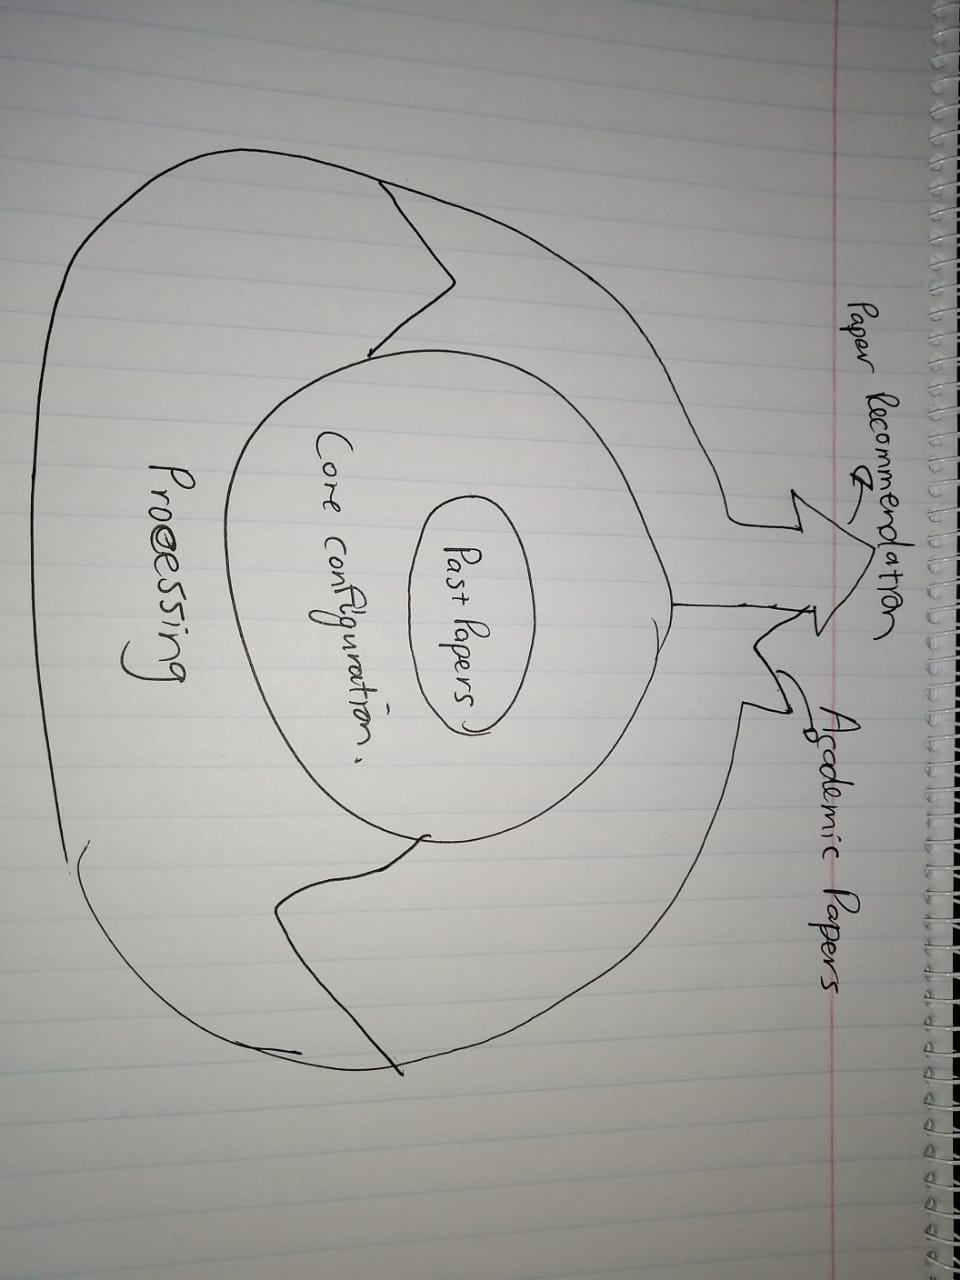 Paper Recommendation
Academic Papers
Past Papers
Core configuration.
Processing